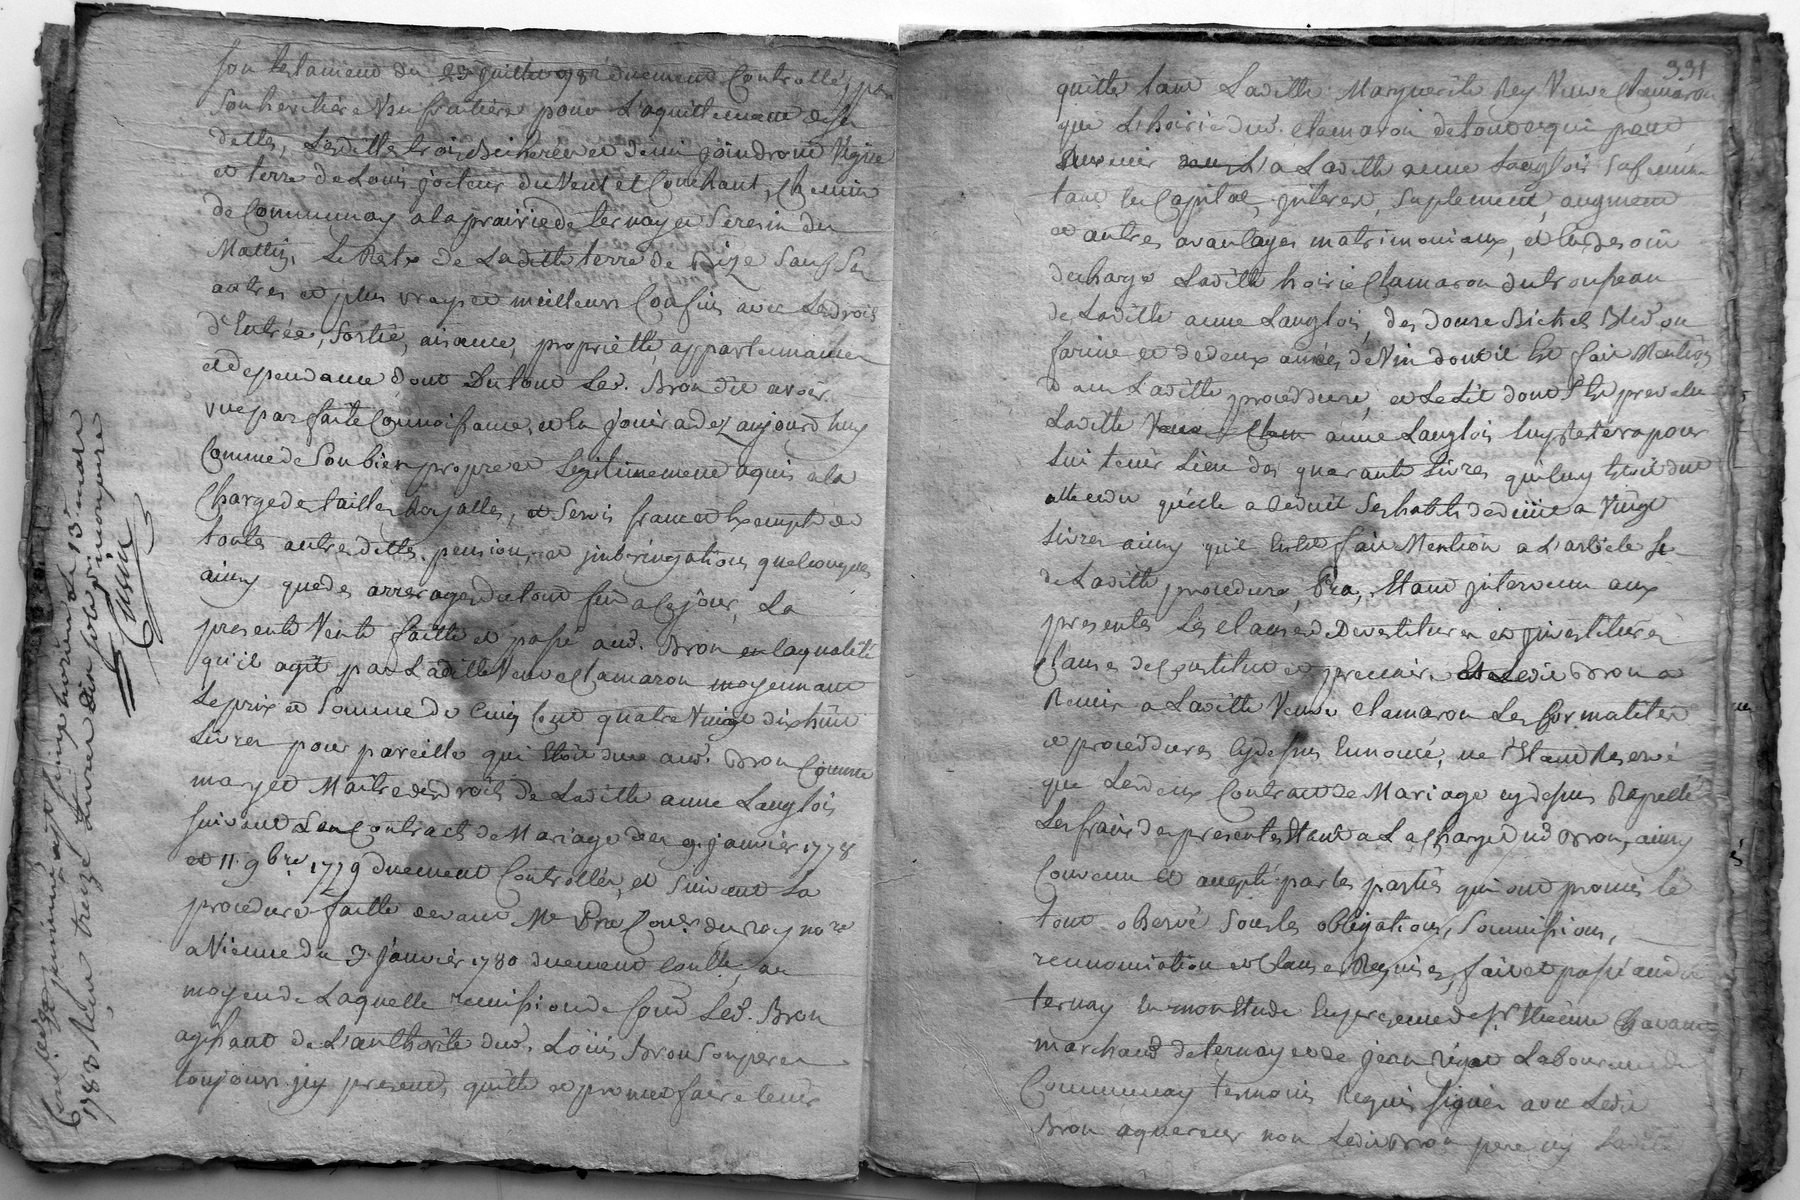 son testament du 23 juillet 1782 duement Controllé, par
son heritiere Usufruitiere pour L'aquittement de ses
dettes, Lesdittes trois Bicherées et demi joindront Vigne
et terre de Louis joiteur du Vent et Couchant, Chemin
de Communay a la prairie de ternay et Seresin du
Mattin, Le Reste de Laditte terre de Bize Sauf Ses
autres et plus vrays et meilleurs Confins avec Les droits
d'Entrée, Sortie, aisance, propriette, appartenances
et dependance dont Du tout Led. Bron dit avoir
une parfaite Connoissance, et en jouira dez aujourd'huy
Comme de Son bien propre et Legitimement aquis a la
Charge des tailles Royalles, et Servis franc et Exempt de
toutes autres dettes, pension, et jmbringations quelconques
ainsy que des arrerages du tout jusqu'a ce jour, La
presente Vente faitte et passé aud. Bron en laqualité
qu'il agit par Laditte Veuve Clamaron moyennant
Le prix et Somme de Cinq Cent quatre Vingt dix huit
Livres pour pareille qui Etoit due aud. Bron Comme
mary et Maitre des droits de Laditte anne Langlois
suivant Leur Contract de Mariage des 9. janvier 1778
et 11. 9bre. 1779 duement Controllés, et Suivant La
procedure faitte devant Me Pra Coner. du roy nore
a Vienne du 3 janvier 1780 duement Contllé, au
moyen de Laquelle remission de fond Led. Bron
agissant de L'authorité dud. Loüis Bron Son pere
toujours jcy present, quitte et promet faire tenir
Controllé a st simphorien le 13 mars
1783 Reçu treize Livres dix sols
331
quitte tant Laditte Marguerite Rey Veuve Clamaron
que L'hoirie dud. Clamaron de tout ce qui peut
Revenir a Laditte anne Langlois Sa femme
tant en Capital, jnterest, Suplement, augment
et autres avantages matrimoniaux, et
decharge Laditte hoirie Clamaron du trousseau
de Laditte anne Langlois, des douze Bichets Bled ou
farine et de deux anées de Vin dont il Est fait Mention
dans Laditte procedure, et Le Lit dont S'est prevalu
Laditte Veuve Clam anne Langlois Luy Restera pour
lui tenir Lieu des quarante Livres qu'il luy Etoit due
attendu qu'elle a Reduit Ses habits de a Vingt
Livres ainsy qu'il Est fait Mention a L'article 5e
de Laditte procedure, Pra, Etant jntervenu aux
presentes Les Clauses Devestitures et jnvestitures
Clause de Constitut et precaire. Et Ledit Bron a
Remis a Laditte Veuve Clamaron Les formalités
et procedures Cydessus Ennoncé, ne S'Etant Reservé
que Les deux Contract de Mariage cydessus Rapellé
Les frais des presentes Etant a La charge dud Bron, ainsy
Convenu et accepté par les parties qui ont promis le
tout observé Sous les obligations, Soumissions,
rennonciation et Clauses Requises, fait et passé audit
ternay En mon Etude En presence de sr. Etienne Chavan
marchand de ternay et de jean Laboureur de
Communay temoins Requis Signés avec Ledit
Bron aquereur non Ledit Bron pere ny Laditte